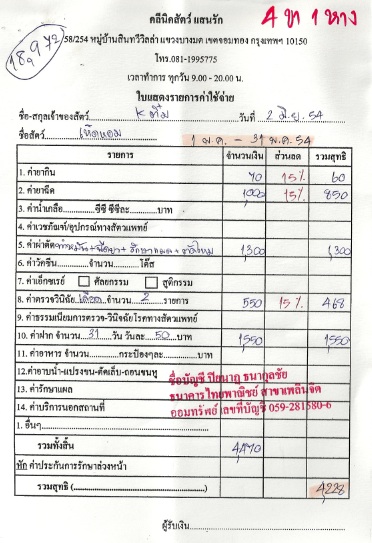 คลีนิคสัตว์ แสนรัก
4 ขา 1 หาง
18,972
58/254 หมู่บ้านสินทวีวิลล่า แขวงบางมด เขตจอมทอง กรุงเทพฯ 10150
โทร.081-1995775
เวลาทำการ ทุกวัน 9.00 - 20.00 น.
ใบแสดงรายการค่าใช้จ่าย
ชื่อ-สกุลเจ้าของสัตว์ วันที่ 2 มิ.ย. 54
ชื่อสัตว์ เห็ดหอม 1 พ.ค. - 31 พ.ค. 54
รายการ จำนวนเงิน ส่วนลด รวมสุทธิ
1. ค่ายากิน 70 15% 60
2. ค่ายาฉีด 1,000 15% 850
3. ค่าน้ำเกลือ ซีซี ซีซีละ บาท
4. ค่าเวชภัณฑ์/อุปกรณ์ทางสัตวแพทย์
5. ค่าผ่าตัด 1,300 1,300
6. ค่าวัคซีน จำนวน โด๊ส
7. ค่าเอ็กซเรย์ ศัลยกรรม สูติกรรม
8. ค่าตรวจวินิฉัย เลือด จำนวน 2 รายการ 550 15% 468
9. ค่าธรรมเนียมการตรวจ-วินิจฉัยโรคทางสัตวแพทย์
10. ค่าฝาก จำนวน 31 วัน วันละ 50 บาท 1,550 1550
11. ค่าอาหาร จำนวน กระป๋องๆละ บาท
12. ค่าอาบน้ำ-แปรงขน-ตัดเล็บ-ถอนขนหู
13. ค่ารักษาแผล
14. ค่าบริการนอกสถานที่
ชื่อบัญชี ปิยนาฏ ธนากุลชัย
ธนาคารไทยพาณิชย์ สาขาเพลินจิต
ออมทรัพย์ เลขที่บัญชี 059-281580-6
1. อื่นๆ
รวมทั้งสิ้น 4,470
หัก ค่าประกันการรักษาล่วงหน้า
รวมสุทธิ ( ) 4,228
ผู้รับเงิน